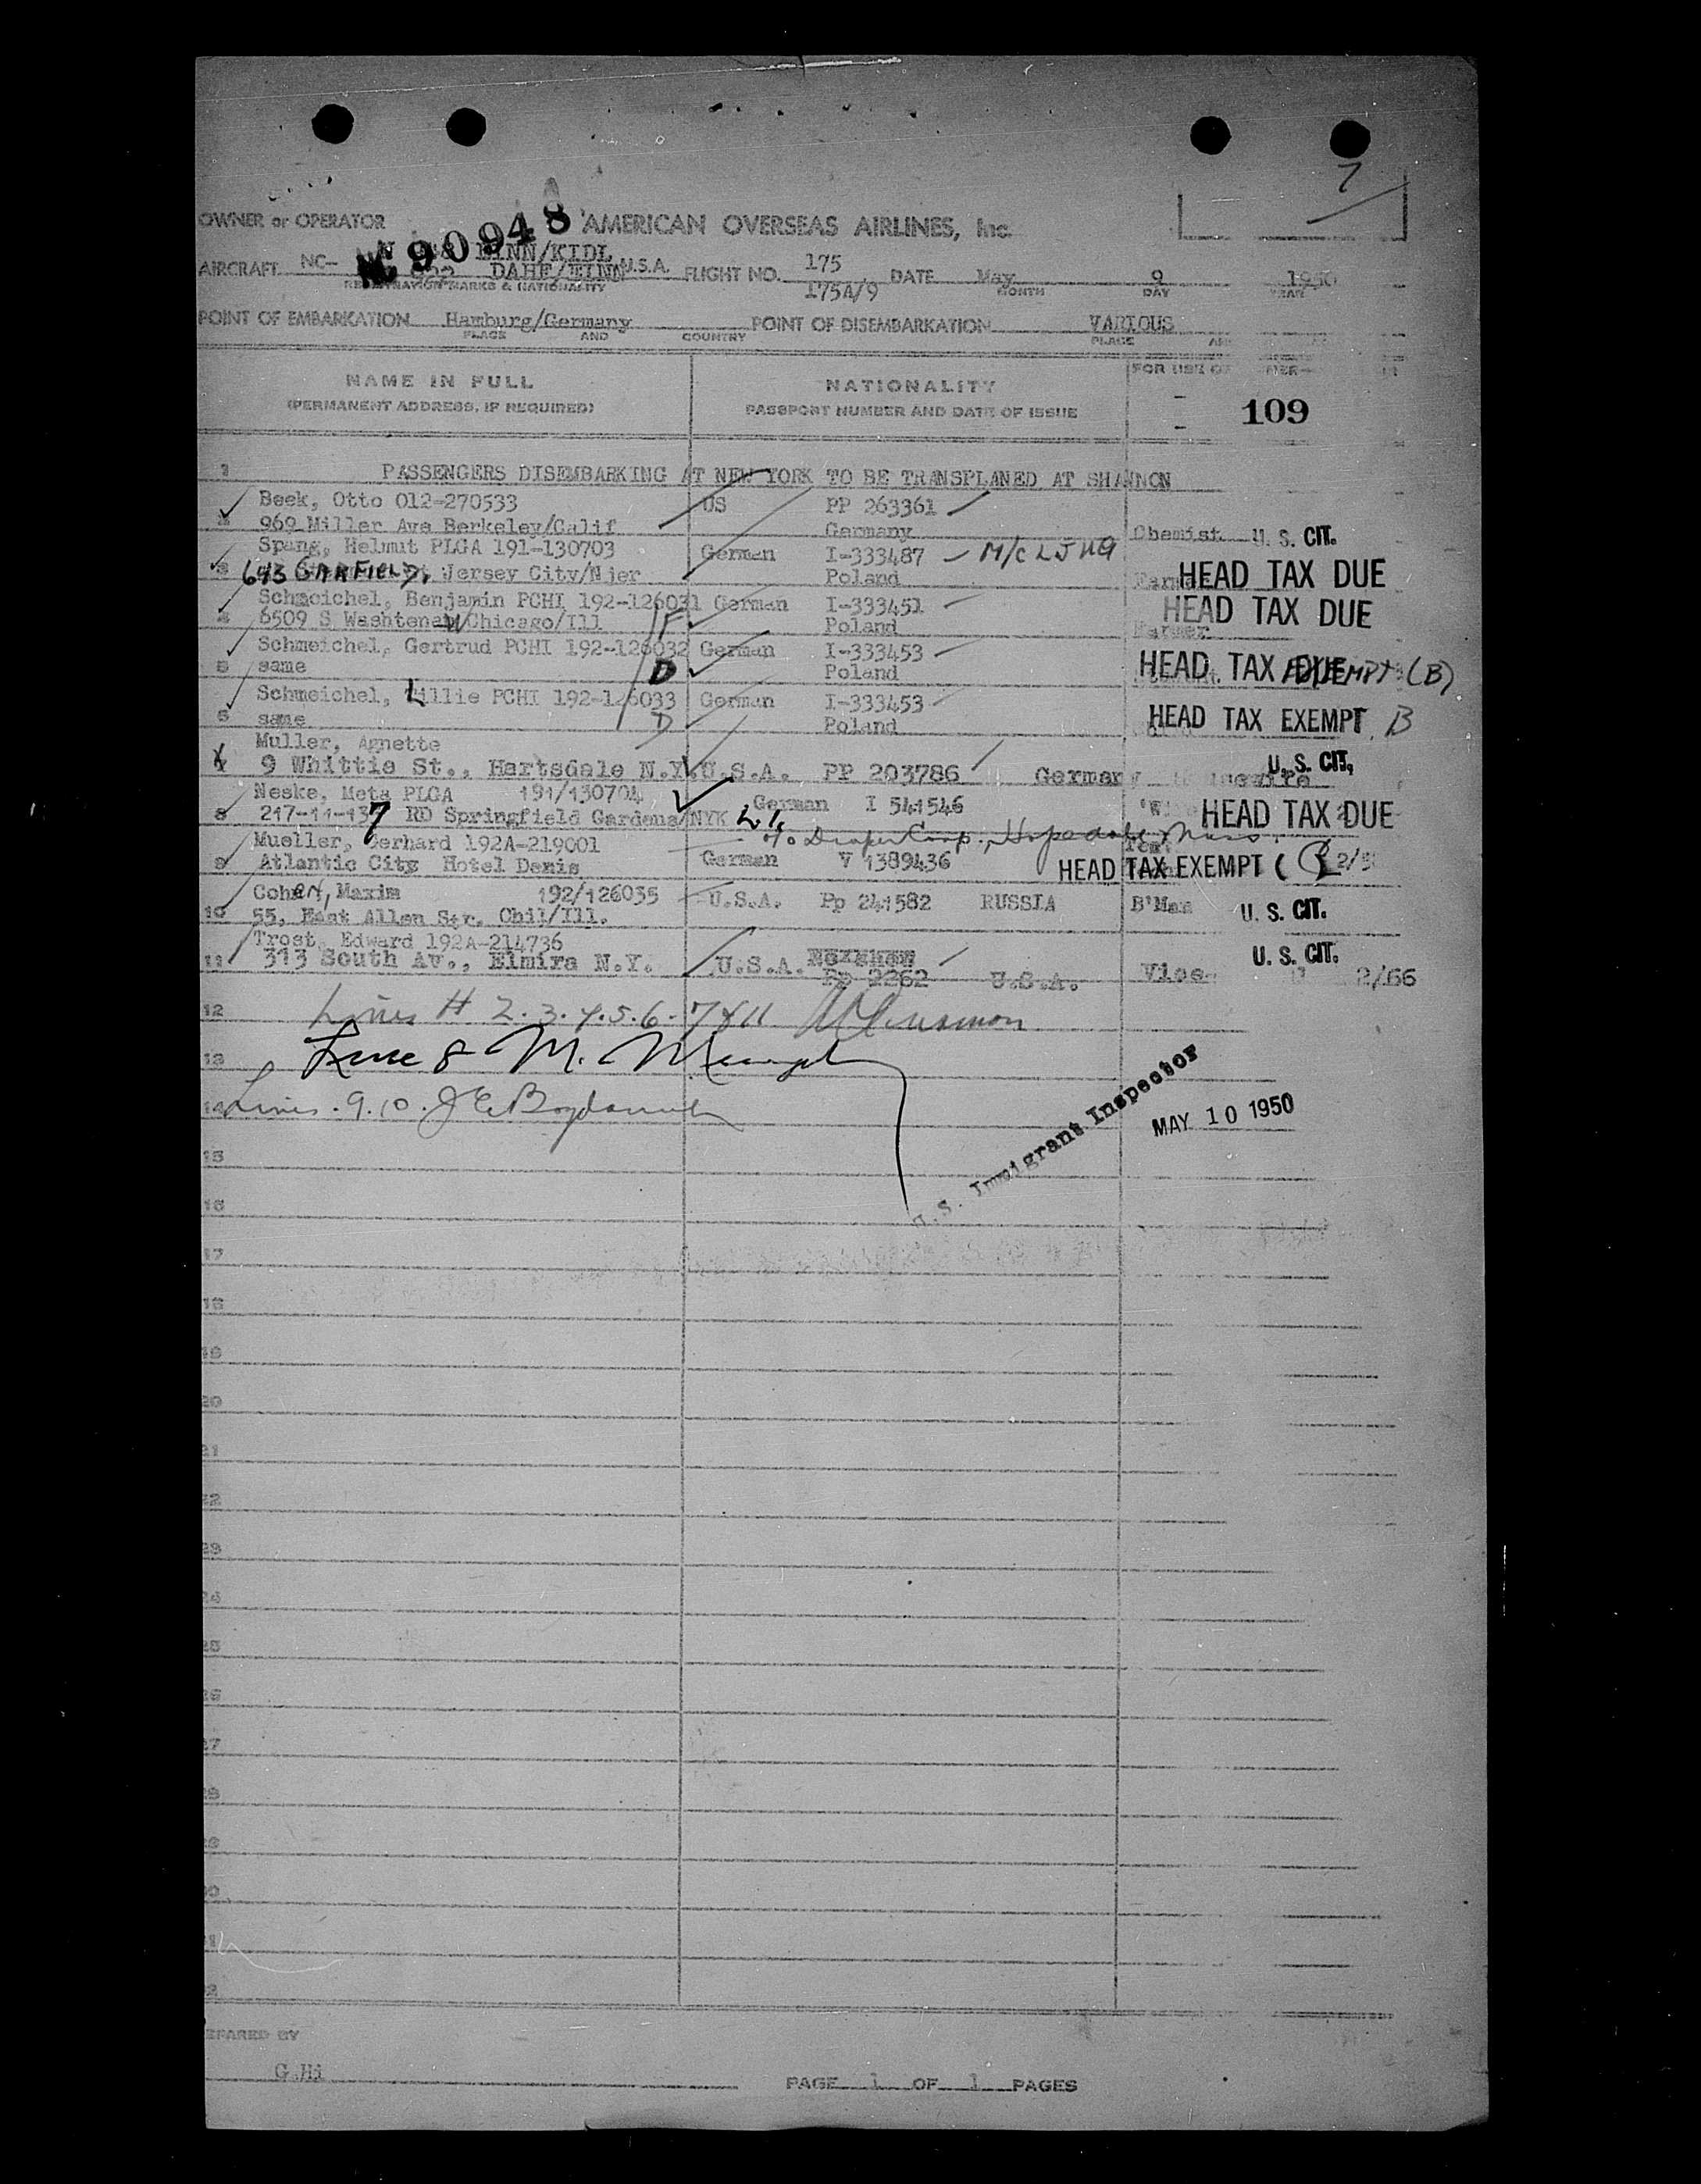 7
OWNER or OPERATOR AMERICAN OVERSEAS AIRLINES, Inc
90948
AIRCRAFT NC- DAHF/EINN U.S.A. FLIGHT NO. 175 DATE May 9 1950
REGISTRATION MARKS & NATIONALITY 175A/9 MONTH DAY YEAR
POINT OF EMBARKATION Hamburg/Germany POINT OF DISEMBARKATION VARIOUS
PLACE AND COUNTRY PLACE
NAME IN FULL NATIONALITY FOR USE OF
(PERMANENT ADDRESS, IF REQUIRED) PASSPORT NUMBER AND DATE OF ISSUE 109
1 PASSENGERS DISEMBARKING AT NEW YORK TO BE TRANSPLANED AT SHANNON
Beek, Otto 012-270533 US PP 263361
969 Miller Ave Berkeley/Calif Germany Chemist U. S. CIT.
Spang, Helmut PLGA 191-130703 German I-333487 M/c
3 643 GARFIELD, Jersey City/Njer Poland HEAD TAX DUE
Schmeichel, Benjamin PCHI 192-126031 German I-333451 HEAD TAX DUE
4 6509 S Washtenaw Chicago/Ill F Poland Farmer
Schmeichel, Gertrud PCHI 192-126032 German I-333453
5 same D Poland HEAD TAX EXEMPT (B)
Schmeichel, Lillie PCHI 192-126033 German I-333453
6 same D Poland HEAD TAX EXEMPT B
Muller, Agnette
9 Whittie St., Hartsdale N.Y. U.S.A. PP 203786 Germany U. S. CIT.
Neske, Meta PLGA 191/130704 German I 541546
8 217-11-137 RD Springfield Gardens/NYK HEAD TAX DUE
Mueller, Gerhard 192A-219001 c/o Draper Corp., Hopedale, Mass.
9 Atlantic City Hotel Denis German V 1389436 HEAD TAX EXEMPT (
Cohen, Maxim 192/126035 U.S.A. Pp 241582 RUSSIA B'Man
10 55, East Allen Str. Chil/Ill. U. S. CIT.
Trost, Edward 192A-214736
11 313 South Av., Elmira N.Y. U.S.A. Pp 2262 U.S.A. Vice U. S. CIT. 2/66
12 Lines # 2.3.4.5.6-7&11
13 Line 8 M.
14 Lines. 9.10.
U.S. Immigrant Inspector
MAY 10 1950
15
16
17
18
19
20
21
22
23
24
25
26
27
28
29
PREPARED BY
G.Hi
PAGE 1 OF 1 PAGES